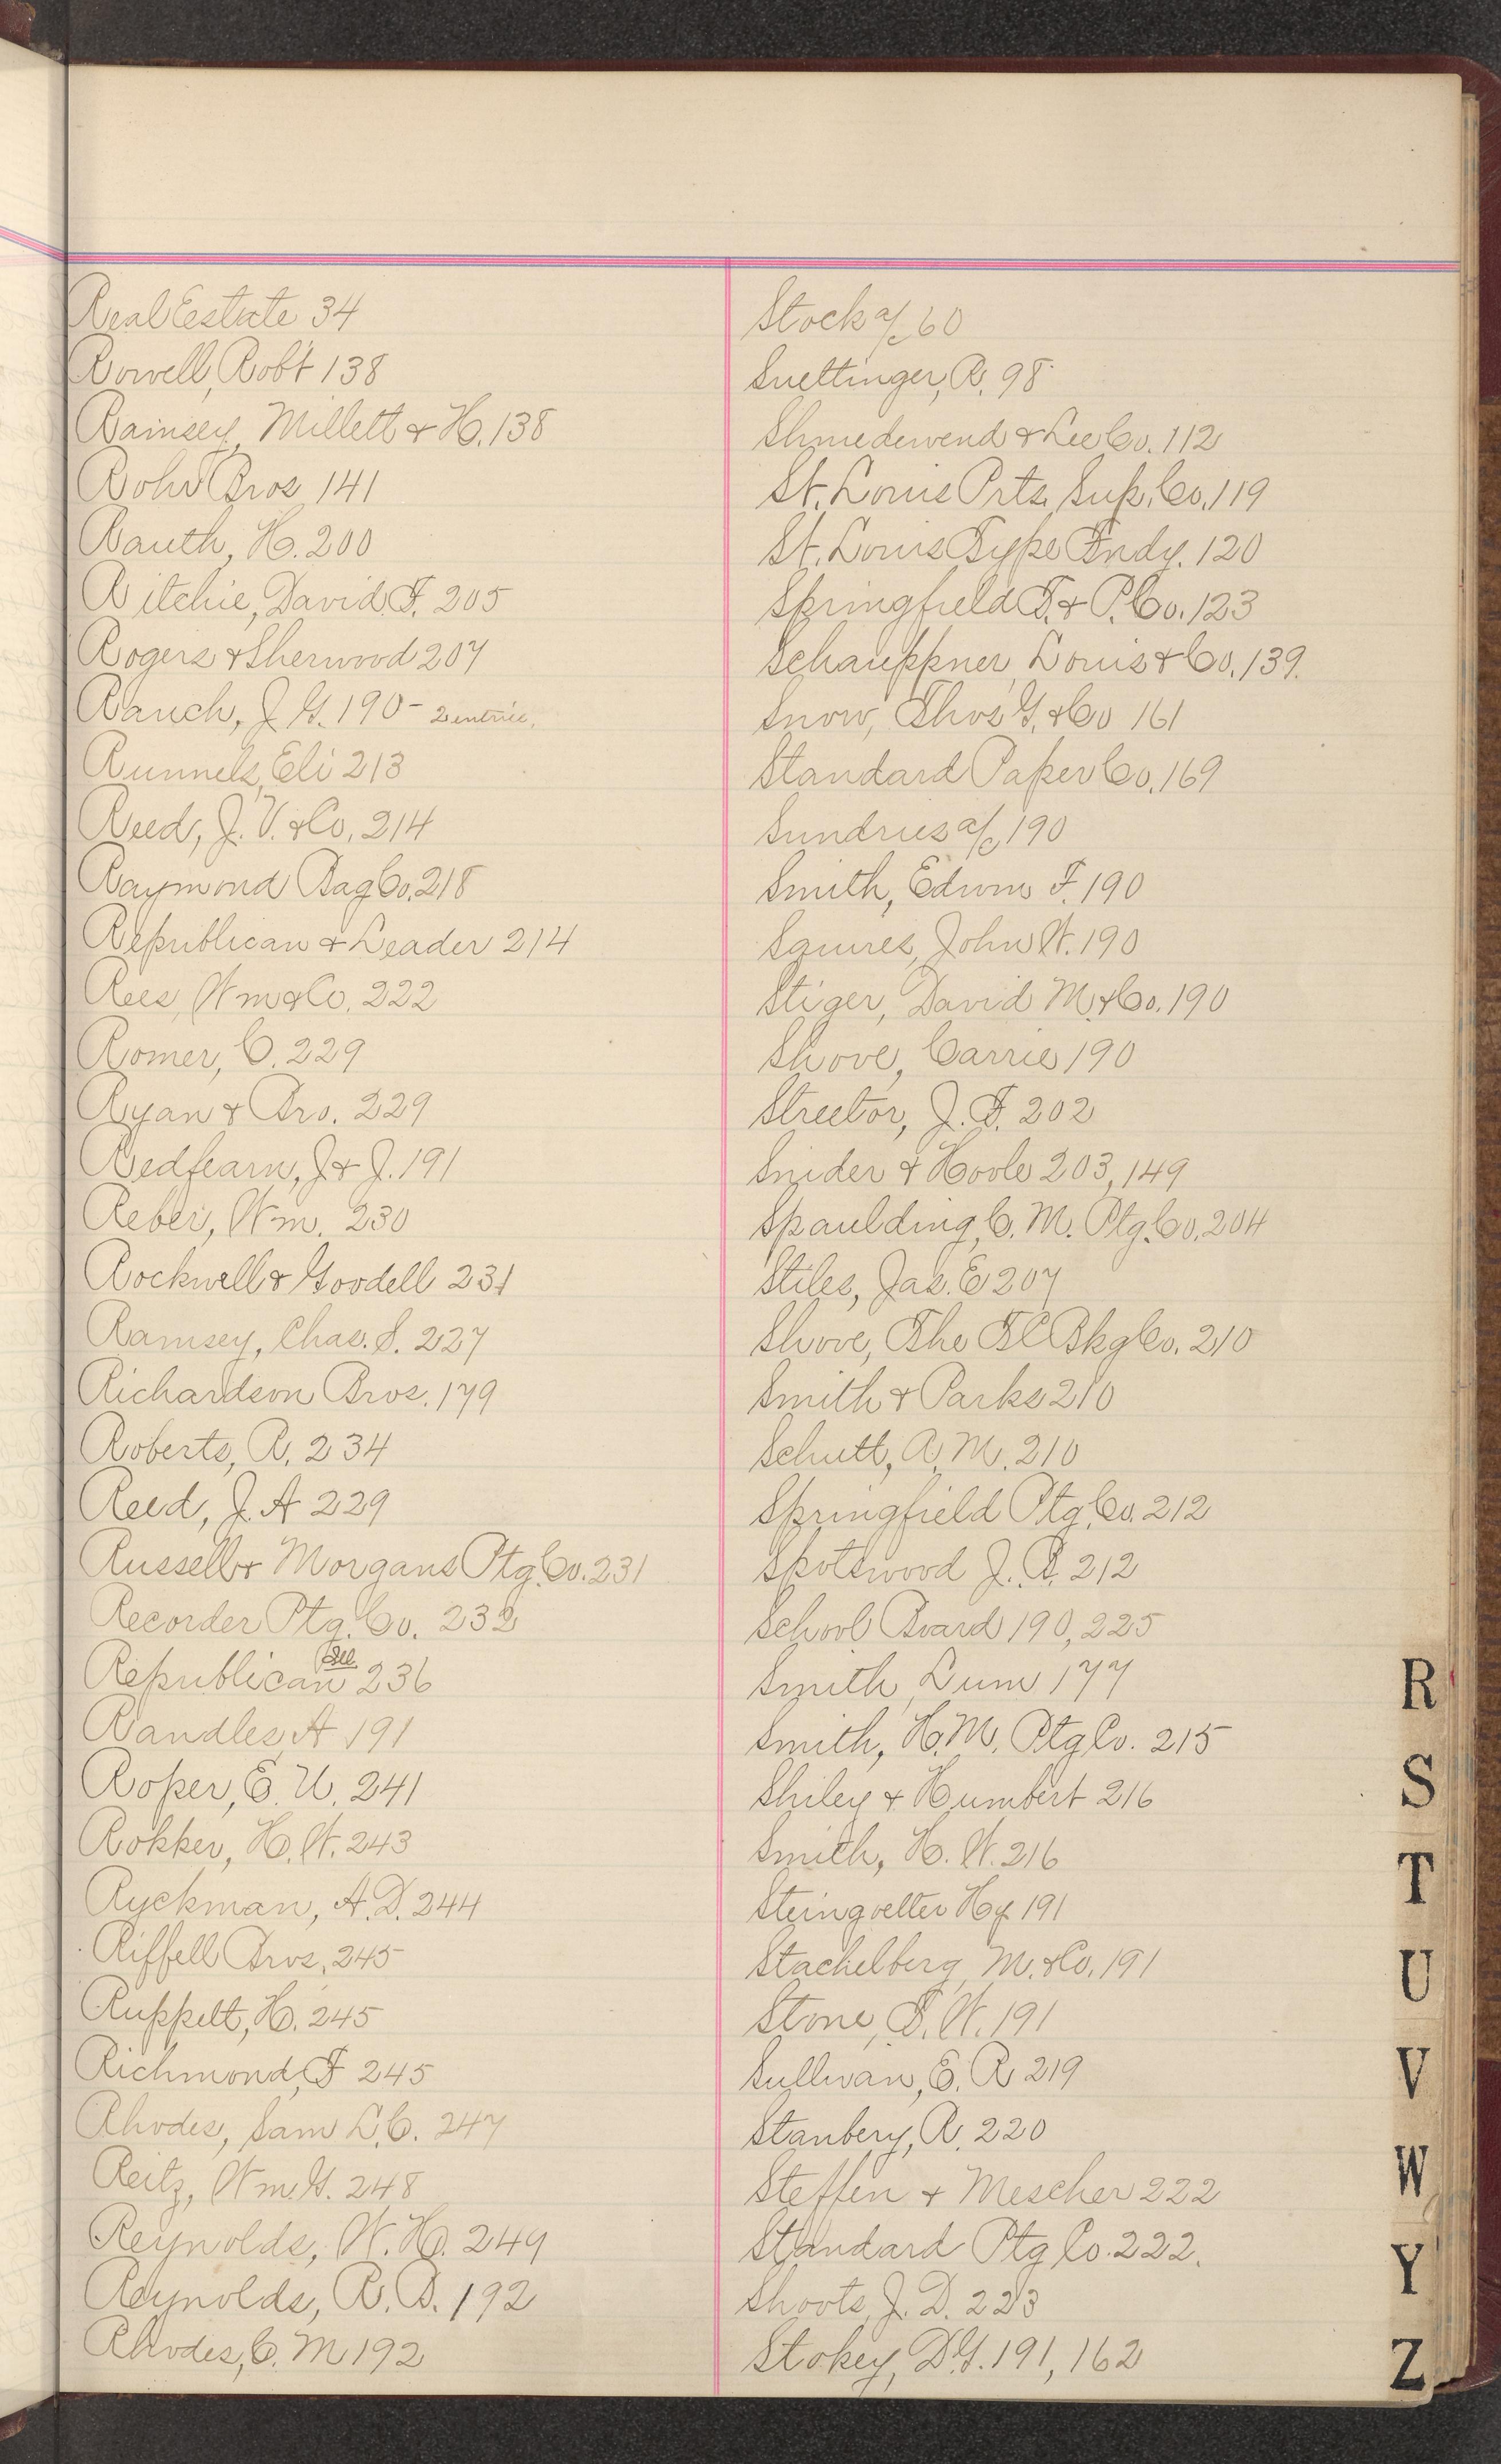 Real Estate 34
Rowell, Robt 138
Ramsey, Millett & H. 138
Rohr Bros 141
Rauth, H. 200
Ritchie, David F. 205
Rogers & Sherwood 207
Rauch, J. G. 190 - 2 entries.
Runnels, Eli 213
Reed, J. V. & Co. 214
Raymond Bag Co. 218
Republican & Leader 214
Rees, Wm & Co. 222
Romer, C. 229
Ryan & Bro. 229
Redfearn, J & J. 191
Reber, Wm. 230
Rockwell & Goodell 231
Ramsey, Chas. S. 227
Richardson Bros. 179
Roberts, R. 234
Reed, J. A 229
Russell & Morgans Ptg. Co. 231
Recorder Ptg. Co. 232
Republican 236
Randles, A 191
Roper, E. U. 241
Rokker, H. W. 243
Ryckman, A. D. 244
Riffell Bros. 245
Ruppelt, H. 245
Richmond, F 245
Rhodes, Sam L. C. 247
Reitz, Wm. G. 248
Reynolds, W. H. 249
Reynolds, R. B. 192
Rhodes, C. M 192
Stock a/c 60
Suettinger, R. 98
Shmedewend & Lee Co. 112
St. Louis Prts. Sup. Co. 119
St. Louis Type Fndy. 120
Springfield F. & P. Co. 123
Schauppner, Louis & Co. 139.
Snow, Thos G. & Co 161
Standard Paper Co. 169
Sundries a/c 190
Smith, Edwin F. 190
Squires, John W. 190
Stiger, David M. & Co. 190
Shove, Carrie 190
Streetor, J. F. 202
Snider & Hoole 203, 149
Spaulding, C. M. Ptg. Co. 204
Stiles, Jas. E 207
Shove, The TC Bkg Co. 210
Smith & Parks 210
Schutt, A. M. 210
Springfield Ptg. Co. 212
Spotswood J. B. 212
School Board 190, 225
Smith, Lum 177
Smith, H. M. Ptg Co. 215
Shiley & Humbert 216
Smith, H. W. 216
Steingoetter Hy 191
Stachelberg, M. & Co. 191
Stone, S. W. 191
Sullivan, E. R 219
Stanbery, R. 220
Steffen & Mescher 222
Standard Ptg Co. 222.
Shoots, J. D. 223
Stokey, D. G. 191, 162
R
S
T
U
V
W
Y
Z